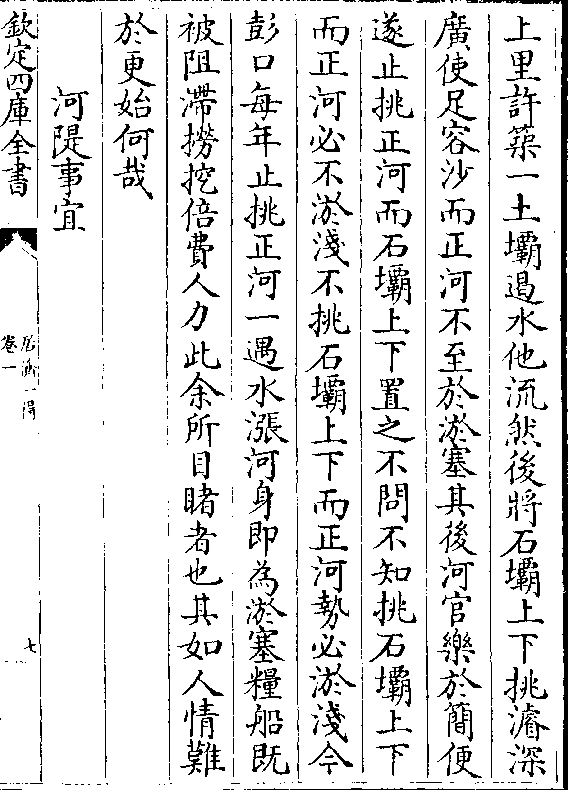 上里許築一土壩遏水他流然後將石壩上下挑濬深
廣使足容沙而正河不至於淤塞其後河官樂於簡便
遂止挑正河而石壩上下置之不問不知挑石壩上下
而正河必不淤淺不挑石壩上下而正河勢必淤淺今
彭口每年止挑正河一遇水漲河身即為淤塞糧船既
被阻滯撈挖倍費人力此余所目睹者也其如人情難
於更始何哉
河隄事宜
欽定四庫全書
居濟一得
卷一
七